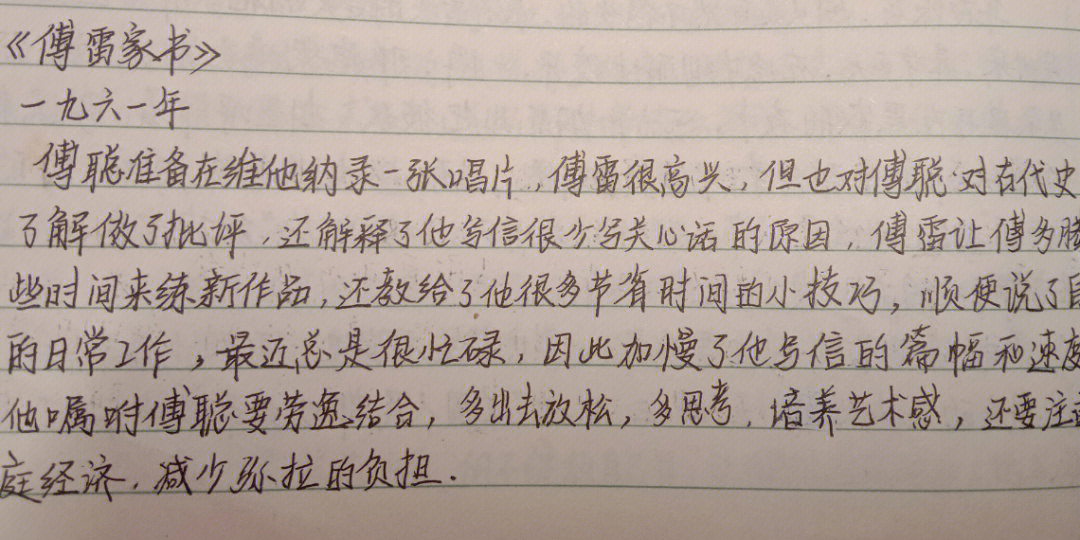 《傅雷家书》
一九六一年
傅聪准备在维也纳录一张唱片，傅雷很高兴，但也对傅聪对古代史
了解做了批评，还解释了他写信很少写关心话的原因，傅雷让傅多腾
些时间来练新作品，还教给了他很多节省时间的小技巧，顺便说了自
的日常工作，最近总是很忙碌，因此加慢了他写信的篇幅和速度
他嘱咐傅聪要劳逸结合，多出去放松，多思考，培养艺术感，还要注意
庭经济，减少弥拉的负担.